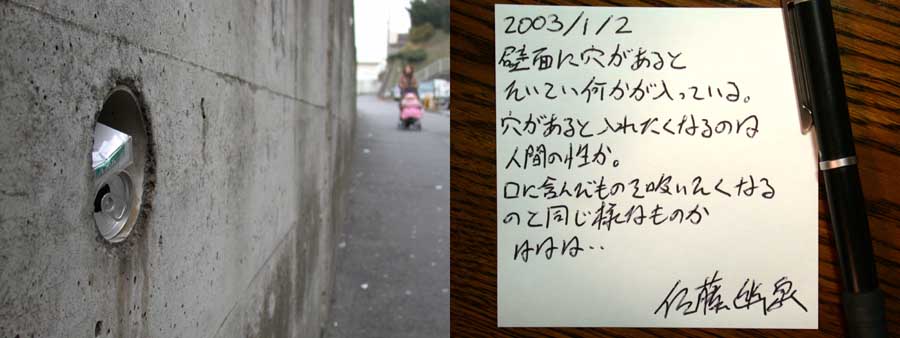 2003/1/2
壁面に穴があると
たいてい何かが入っている。
穴があると入れたくなるのは
人間の性か。
口に含んだものを吸いたくなる
のと同じ様なものか
ははは‥
佐藤